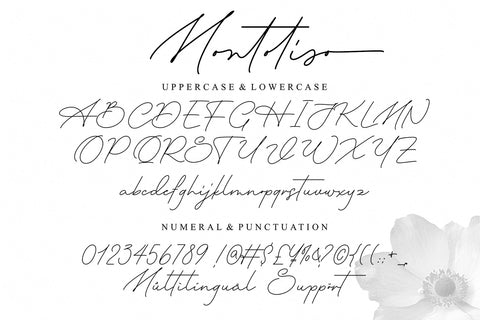 Montotiso
UPPERCASE & LOWERCASE
ABCDEFGHIJKLMN
OPQRSTUVWXYZ
abcdefghijklmnopqrstuvwxyz
NUMERAL & PUNCTUATION
0123456789 !@#$£¥%&?©{((:;+-_
Múltilingual Support